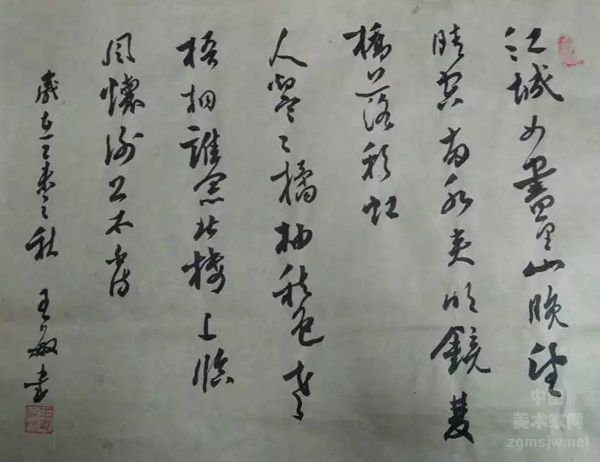 江城如畫里山晚望
晴空兩水夾明鏡雙
橋落彩虹
人橘柚秋色老
梧桐誰念北樓上臨
風懷謝公
歲在之秋 王敏書
中国
美术家网
zgmsjw.net